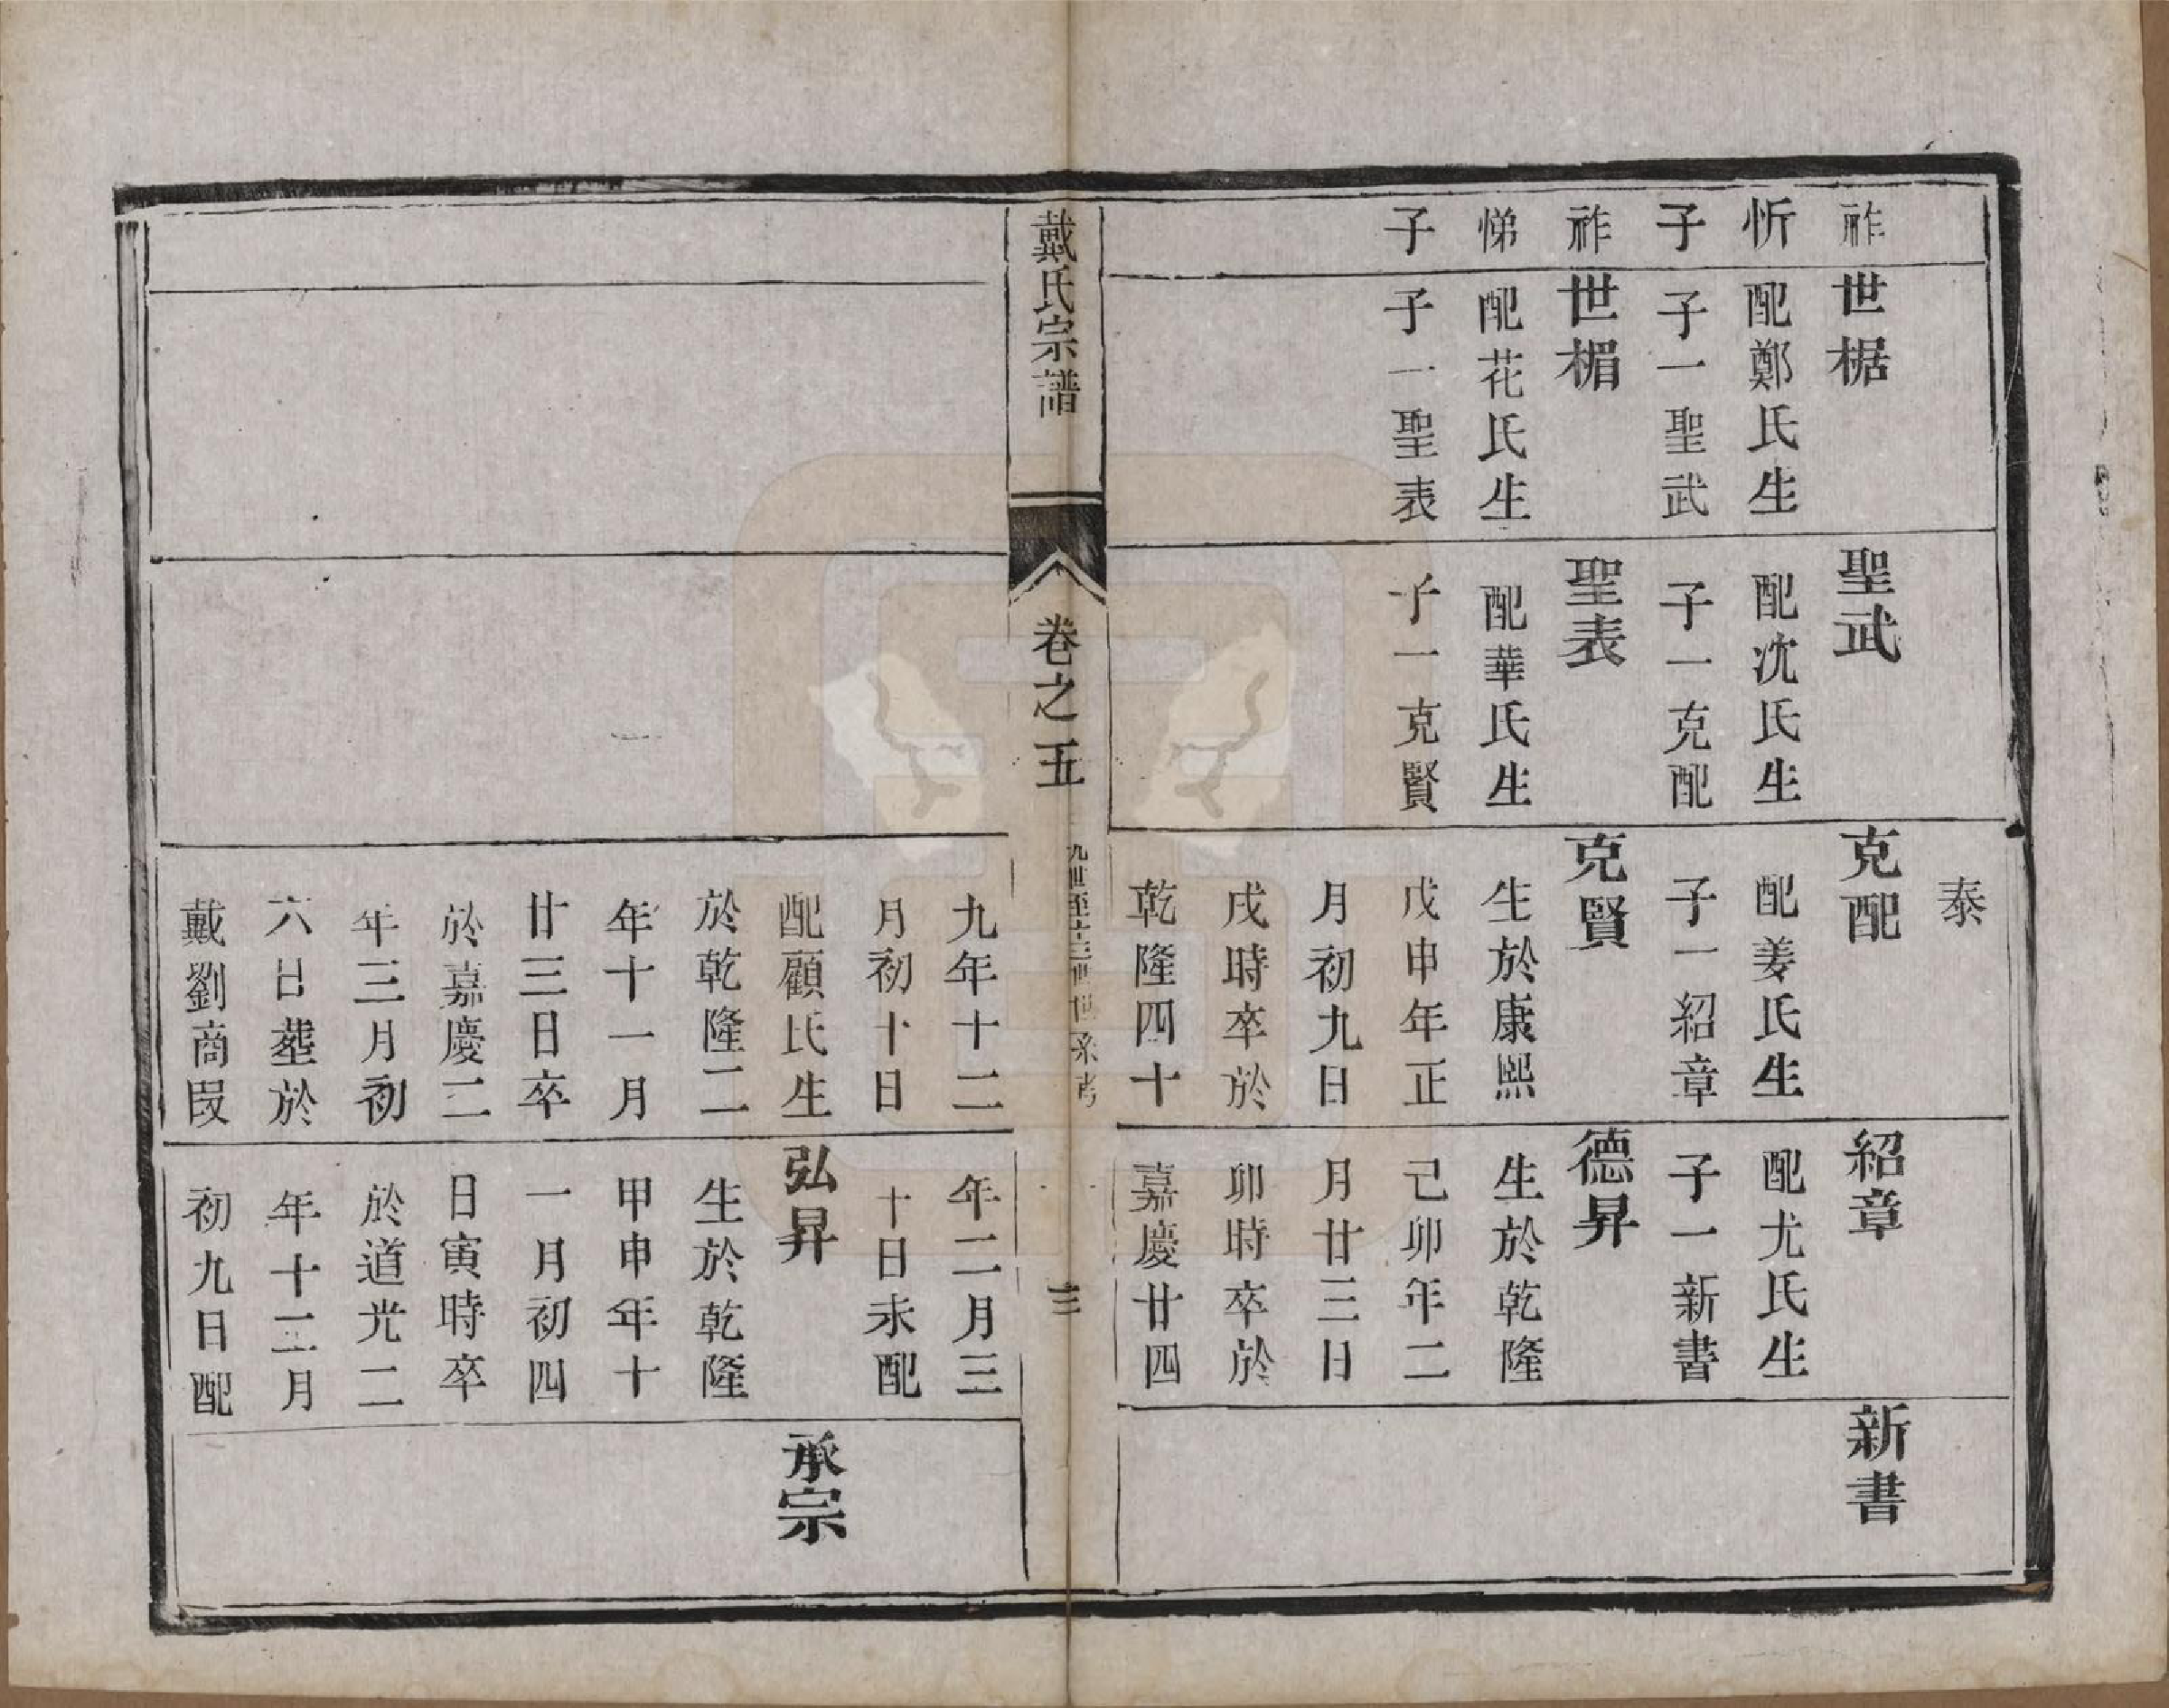 祚
忻
子
祚
悌
子
世椐
配鄭氏生
子一聖武
世楣
配花氏生
子一聖表
聖武
配沈氏生
子一克配
聖表
配華氏生
子一克賢
泰
克配
配姜氏生
子一紹章
克賢
生於康熙
戊申年正
月初九日
戌時卒於
乾隆四十
紹章
配尤氏生
子一新書
德昇
生於乾隆
己卯年二
月廿三日
卯時卒於
嘉慶廿四
新書
戴氏宗譜
卷之五
九世至十三世世系考
三
九年十二
月初十日
配顧氏生
於乾隆二
年十一月
廿三日卒
於嘉慶二
年三月初
六日塟於
戴劉商叚
年二月三
十日未配
弘昇
生於乾隆
甲申年十
一月初四
日寅時卒
於道光二
年十二月
初九日配
承宗